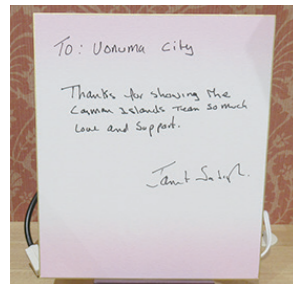 To: Uonuma City
Thanks for showing the
Cayman Islands Team so much
Love and Support.